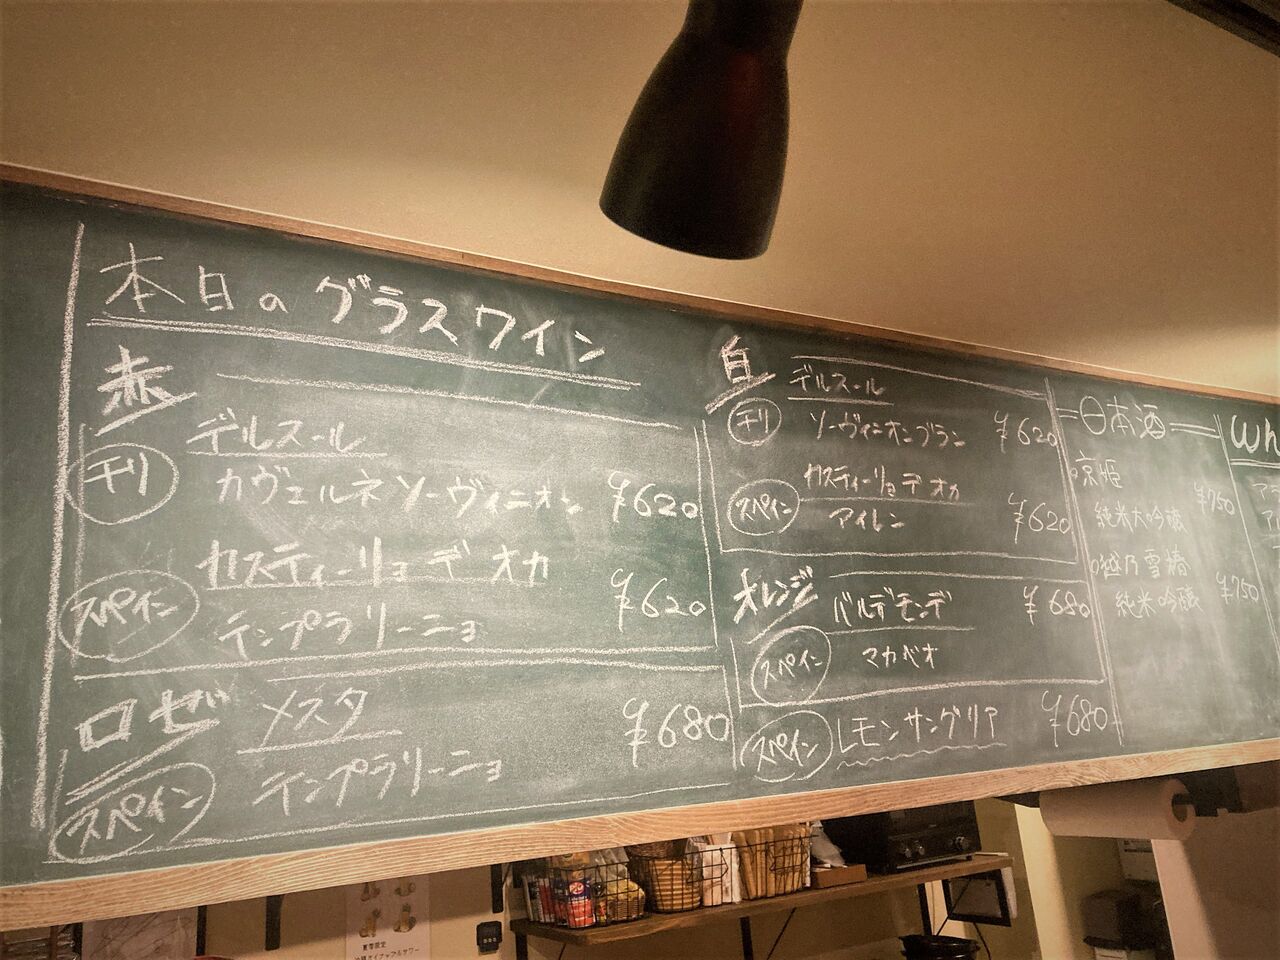 本日のグラスワイン
赤
チリ
デルスール
カヴェルネソーヴィニオン ¥620
スペイン
カスティーリョデオカ
テンプラリーニョ ¥620
ロゼ
メスタ
スペイン
テンプラリーニョ ¥680
白
チリ
デルスール
ソーヴィニオンブラン ¥620
スペイン
カスティーリョデオカ
アイレン ¥620
オレンジ
バルデモンデ ¥680
スペイン
マカベオ
スペイン
レモンサングリア ¥680
日本酒
京姫
純米大吟醸 ¥750
越乃雪椿
純米吟醸 ¥750
Wh
夏季限定